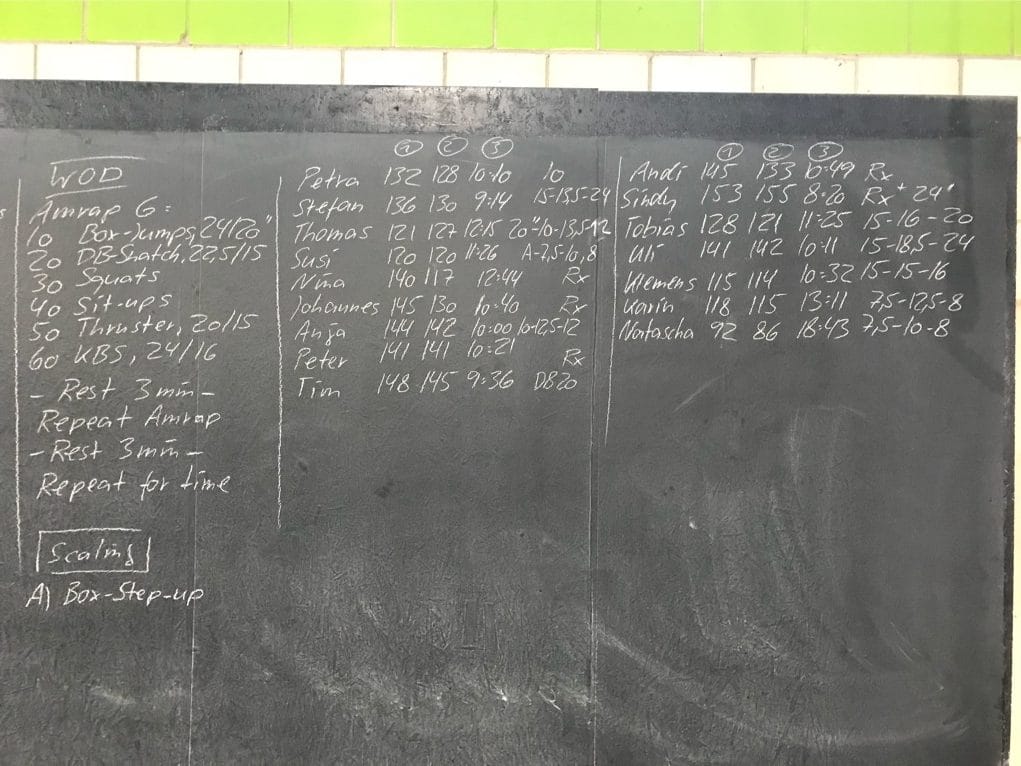 WOD
Amrap 6:
10 Box-Jumps, 24/20"
20 DB-Snatch, 22,5/15
30 Squats
40 Sit-ups
50 Thruster, 20/15
60 KBS, 24/16
- Rest 3 min -
Repeat Amrap
- Rest 3 min -
Repeat for time
Scaling
A) Box-Step-up
1 2 3
Petra 132 128 10:10 10
Stefan 136 130 9:14 15-13,5-24
Thomas 121 127 12:15 20"-10-13,5-12
Susi 120 120 11:26 A-7,5-10,8
Nina 140 117 12:44 Rx
Johannes 145 130 10:40 Rx
Anja 144 142 10:00 10-12,5-12
Peter 141 141 10:21 Rx
Tim 148 145 9:36 DB20
1 2 3
Andi 145 133 10:49 Rx
Sindy 153 155 8:20 Rx+ 24"
Tobias 128 121 11:25 15-16-20
Uli 141 142 10:11 15-18,5-24
Klemens 115 114 10:32 15-15-16
Karin 118 115 13:11 7,5-12,5-8
Natascha 92 86 18:43 7,5-10-8